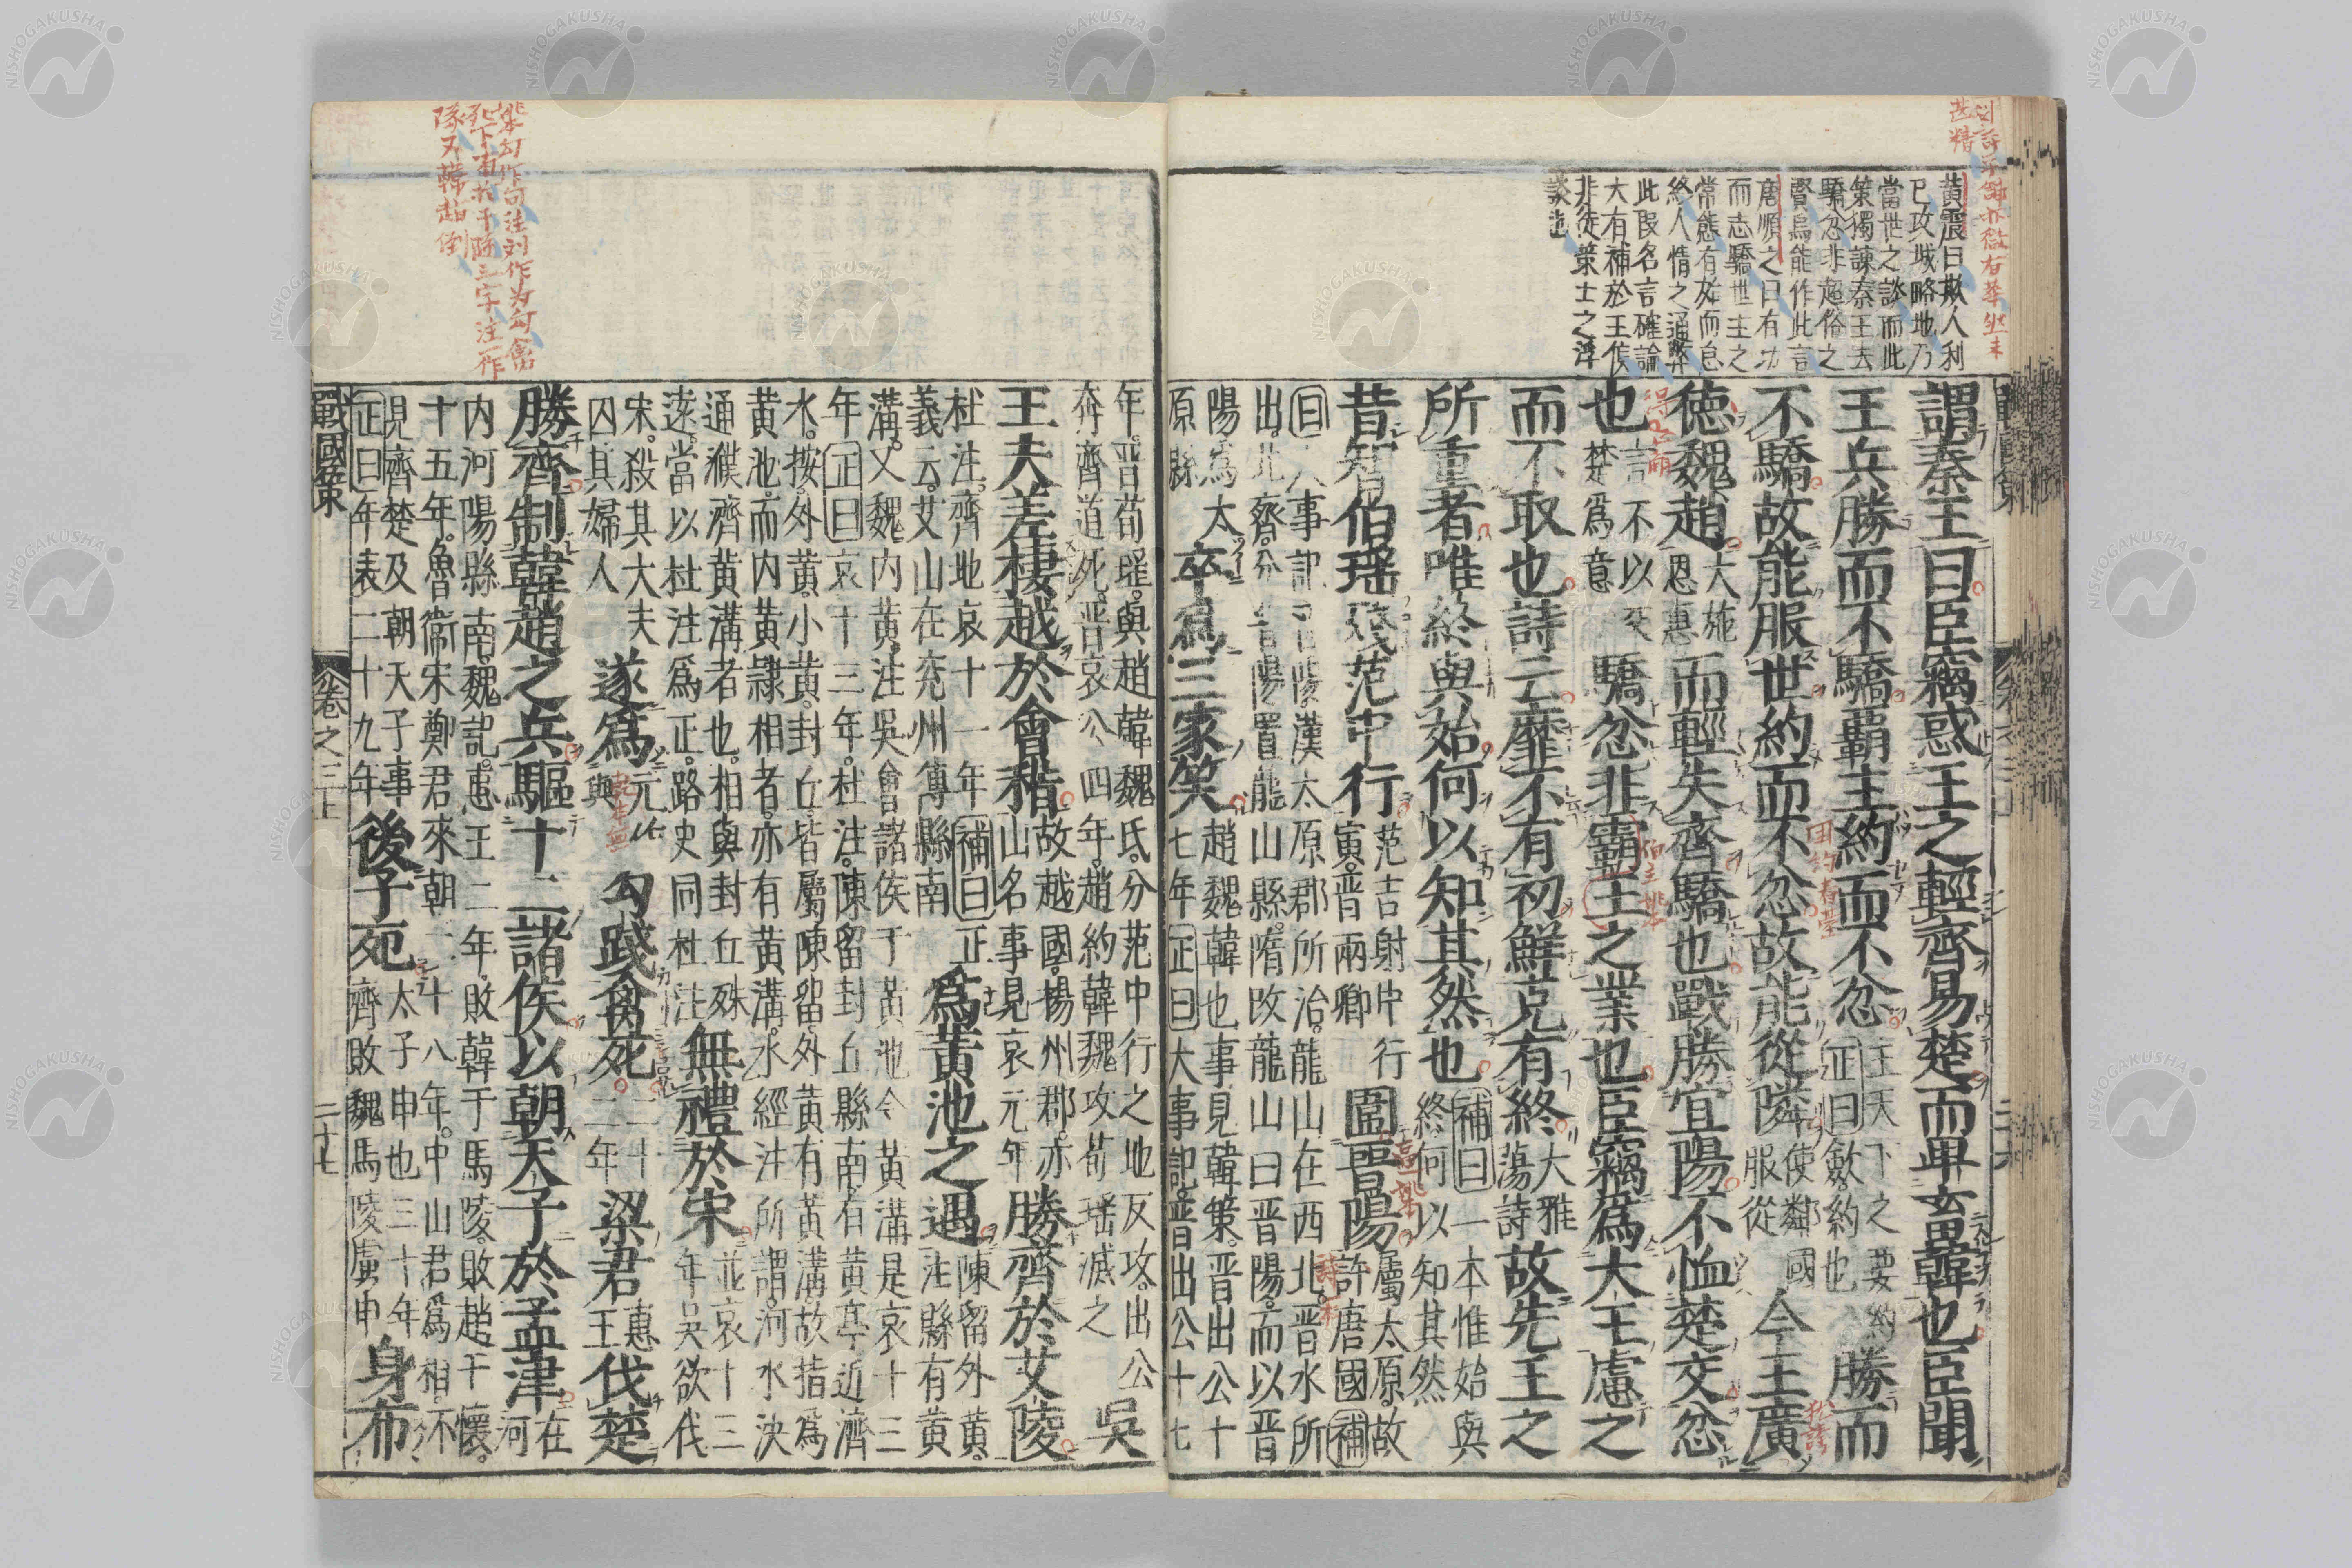 黄震曰欺人利
已攻城略地乃
當世之談而此
策獨諌秦王去
驕忿非超俗之
賢烏能作此言
唐順之曰有功
而志驕世主之
常態有始而怠
終人情之通弊
此段名言確論
大有補於王侯
非徒策士之浮
談也
謂秦王曰臣竊惑王之輕齊易楚而卑畜韓也臣聞
王兵勝而不驕覇主約而不忿王天下之要約正曰歛約也勝而
不驕故能服世約而不忿故能從隣使鄰國服從今王廣
徳魏趙大施恩惠而輕失齊驕也戰勝宜陽不恤楚交忿
也言不以交楚爲意驕忿非霸主之業也臣竊爲大王慮之
而不取也詩云靡不有初鮮克有終大雅蕩詩故先王之
所重者唯終與始何以知其然也補曰一本惟始與終何以知其然
昔智伯瑶殘范中行范吉射中行寅晋兩卿圍晋陽屬太原故許唐國補
曰大事記晋陽漢太原郡所治龍山在西北晋水所
出北齊分晋陽置龍山縣隋改龍山曰晋陽而以晋
陽爲太原縣卒爲三家笑趙魏韓也事見韓策晋出公十七年正曰大事記晋出公十七
年晋荀瑶與趙韓魏氏分范中行之地反攻出公
奔齊道死晋哀公四年趙約韓魏攻荀瑶滅之吳
王夫差棲越於會稽故越國揚州郡亦山名事見哀元年勝齊於艾陵
杜注齊地哀十一年補曰正義云艾山在兖州傳縣南爲黄池之遇陳留外黄注縣有黄
溝又魏内黄注吳會諸侯于黄池今黄溝是哀十三
年正曰哀十三年杜注陳留封丘縣南右黄亭近濟
水按外黄小黄封丘皆屬陳留外黄有黄溝故指爲
黄池而内黄隷相者亦有黄溝水經注所謂河水決
通濮濟黄溝者也相與封丘殊遠當以杜注爲正路史同杜注無禮於宋並哀十三年吳欲伐
宋殺其大夫囚其婦人遂爲元作與勾踐禽死二十二年梁君惠王伐楚
勝齊制韓趙之兵驅十二諸侯以朝天子於孟津在河
内河陽縣南魏記惠王二年敗韓于馬陵敗趙于懐
十五年魯衞宋鄭君來朝二十八年中山君爲相不
見齊楚及朝天子事正曰年表二十九年後子死太子申也三十年齊敗魏馬陵虜申身布
戰國策 卷之三上 二十七
NISHOGAKUSHA